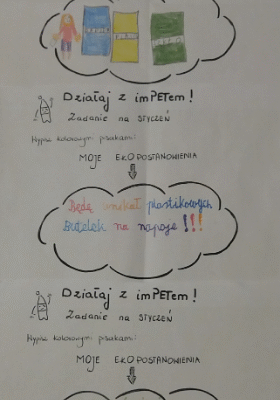 Działaj z imPETem!
Zadanie na STYCZEŃ
Wypisz kolorowymi pisakami:
MOJE EKO POSTANOWIENIA
Będę unikał plastikowych
Butelek na napoje!!!
Działaj z imPETem!
Zadanie na STYCZEŃ
Wypisz kolorowymi pisakami:
MOJE EKO POSTANOWIENIA